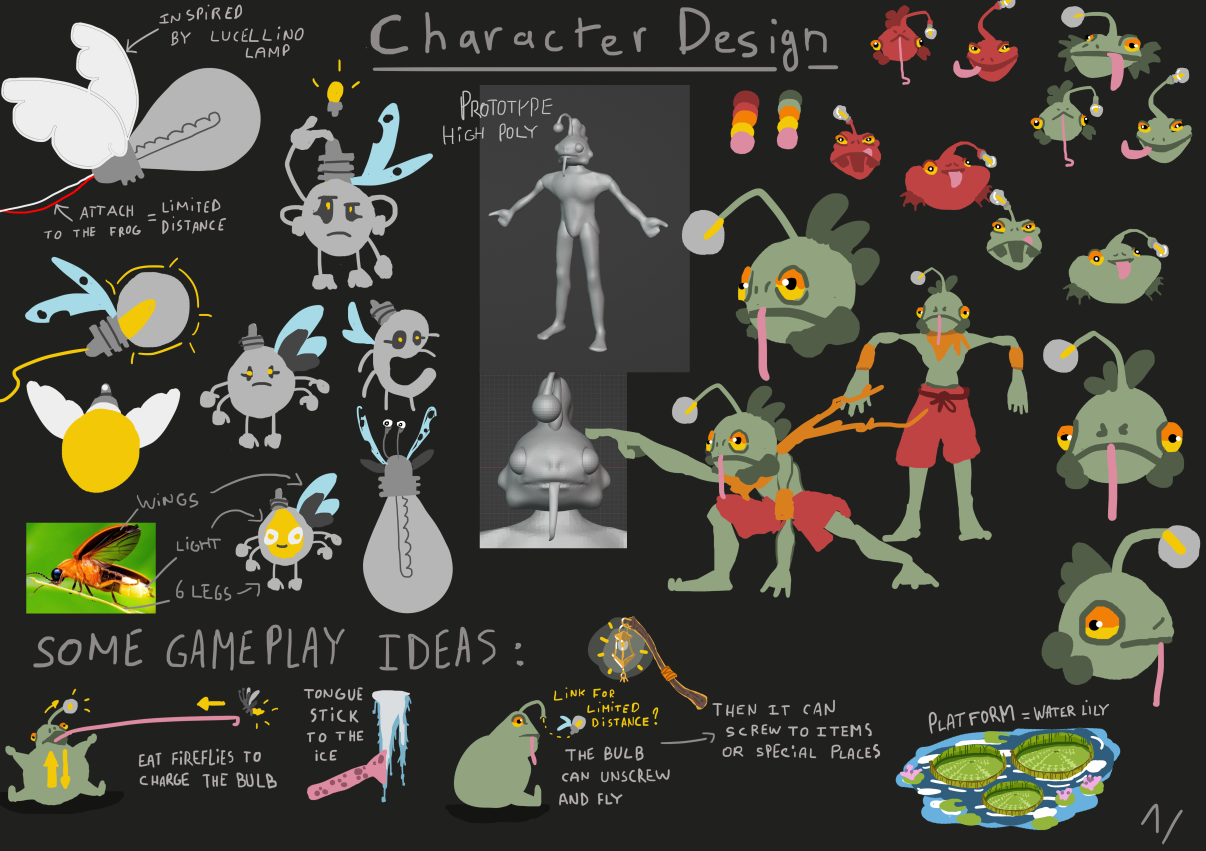 Character Design
INSPIRED
BY LUCELLINO
LAMP
ATTACH = LIMITED
TO THE FROG DISTANCE
PROTOTYPE
HIGH POLY
WINGS
LIGHT
6 LEGS
SOME GAMEPLAY IDEAS:
EAT FIREFLIES TO
CHARGE THE BULB
TONGUE
STICK
TO THE
ICE
LINK FOR
LIMITED
DISTANCE?
THE BULB
CAN UNSCREW
AND FLY
THEN IT CAN
SCREW TO ITEMS
OR SPECIAL PLACES
PLATFORM = WATER LILY
1/